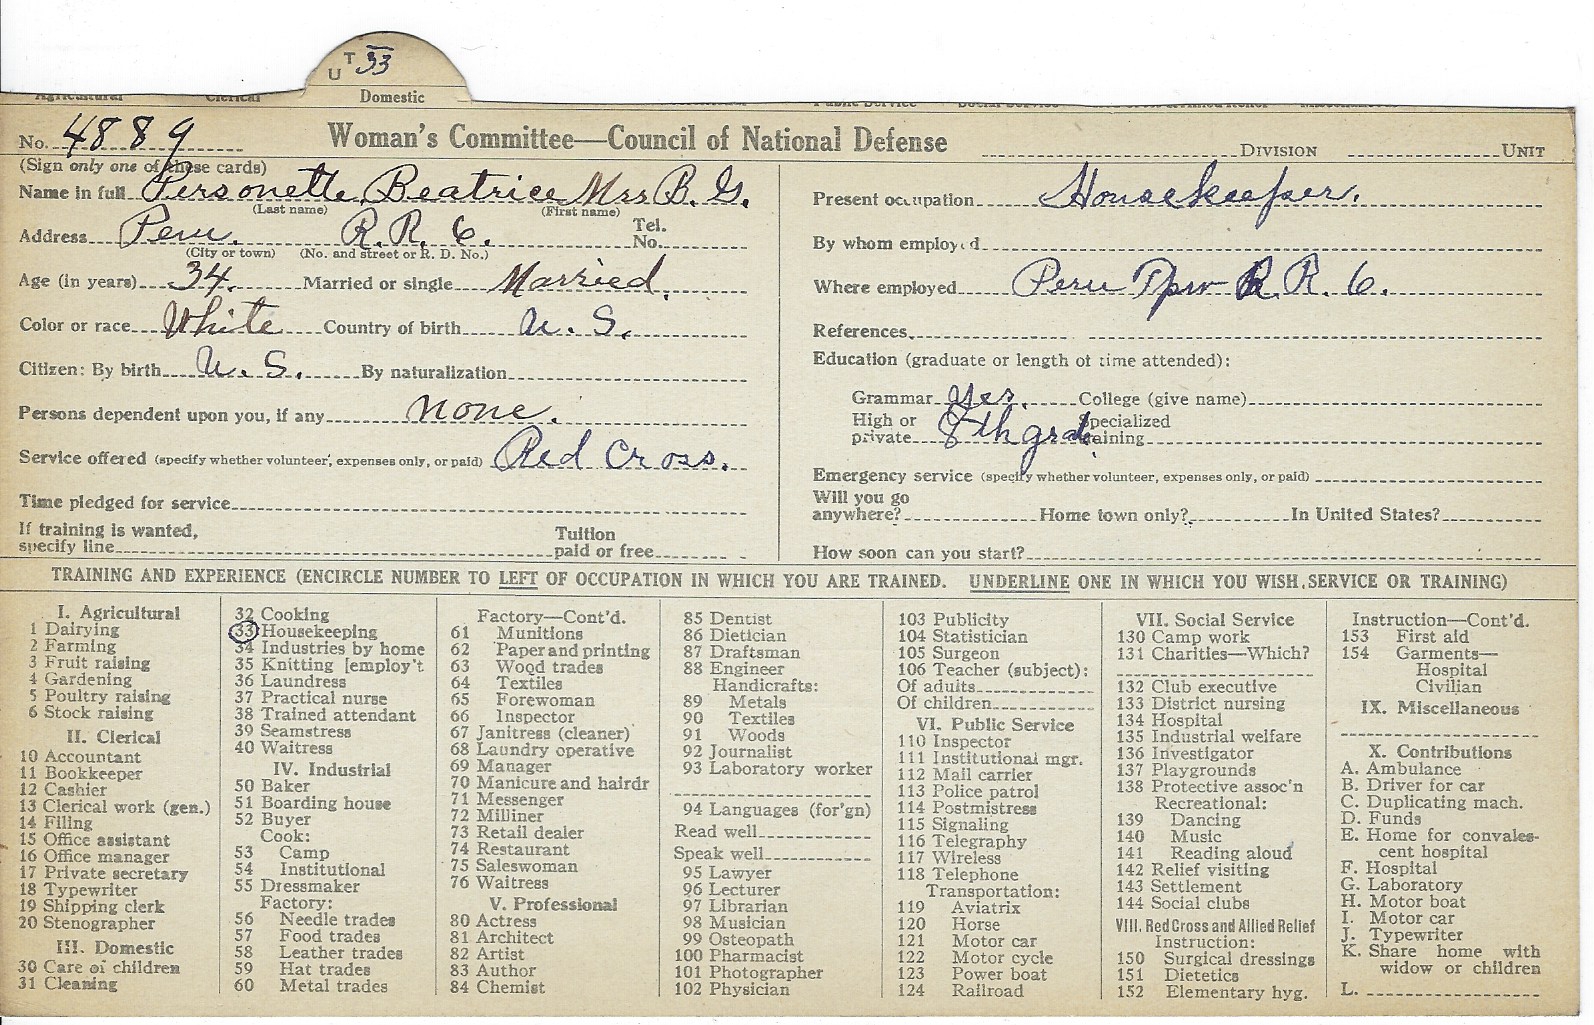 U T 33
Agricultural Clerical Domestic Public Service
No. 4889 Woman's Committee—Council of National Defense DIVISION UNIT
(Sign only one of these cards)
Name in full Personette, Beatrice Mrs B. G.
(Last name) (First name)
Address Peru. R. R. 6. Tel. No.
(City or town) (No. and street or R. D. No.)
Age (in years) 34. Married or single Married.
Color or race White Country of birth U. S.
Citizen: By birth U. S. By naturalization
Persons dependent upon you, if any none.
Service offered (specify whether volunteer, expenses only, or paid) Red Cross.
Time pledged for service
If training is wanted, specify line Tuition paid or free
Present occupation Housekeeper.
By whom employed
Where employed Peru Tpw R. R. 6.
References
Education (graduate or length of time attended):
Grammar yes. College (give name)
High or private 8th grad. Specialized training
Emergency service (specify whether volunteer, expenses only, or paid)
Will you go anywhere? Home town only? In United States?
How soon can you start?
TRAINING AND EXPERIENCE (ENCIRCLE NUMBER TO LEFT OF OCCUPATION IN WHICH YOU ARE TRAINED. UNDERLINE ONE IN WHICH YOU WISH SERVICE OR TRAINING)
I. Agricultural
1 Dairying
2 Farming
3 Fruit raising
4 Gardening
5 Poultry raising
6 Stock raising
II. Clerical
10 Accountant
11 Bookkeeper
12 Cashier
13 Clerical work (gen.)
14 Filing
15 Office assistant
16 Office manager
17 Private secretary
18 Typewriter
19 Shipping clerk
20 Stenographer
III. Domestic
30 Care of children
31 Cleaning
32 Cooking
33 Housekeeping
34 Industries by home
35 Knitting [employ't
36 Laundress
37 Practical nurse
38 Trained attendant
39 Seamstress
40 Waitress
IV. Industrial
50 Baker
51 Boarding house
52 Buyer
Cook:
53 Camp
54 Institutional
55 Dressmaker
Factory:
56 Needle trades
57 Food trades
58 Leather trades
59 Hat trades
60 Metal trades
Factory—Cont'd.
61 Munitions
62 Paper and printing
63 Wood trades
64 Textiles
65 Forewoman
66 Inspector
67 Janitress (cleaner)
68 Laundry operative
69 Manager
70 Manicure and hairdr
71 Messenger
72 Milliner
73 Retail dealer
74 Restaurant
75 Saleswoman
76 Waitress
V. Professional
80 Actress
81 Architect
82 Artist
83 Author
84 Chemist
85 Dentist
86 Dietician
87 Draftsman
88 Engineer
Handicrafts:
89 Metals
90 Textiles
91 Woods
92 Journalist
93 Laboratory worker
94 Languages (for'gn)
Read well
Speak well
95 Lawyer
96 Lecturer
97 Librarian
98 Musician
99 Osteopath
100 Pharmacist
101 Photographer
102 Physician
103 Publicity
104 Statistician
105 Surgeon
106 Teacher (subject):
Of adults
Of children
VI. Public Service
110 Inspector
111 Institutional mgr.
112 Mail carrier
113 Police patrol
114 Postmistress
115 Signaling
116 Telegraphy
117 Wireless
118 Telephone
Transportation:
119 Aviatrix
120 Horse
121 Motor car
122 Motor cycle
123 Power boat
124 Railroad
VII. Social Service
130 Camp work
131 Charities—Which?
132 Club executive
133 District nursing
134 Hospital
135 Industrial welfare
136 Investigator
137 Playgrounds
138 Protective assoc'n
Recreational:
139 Dancing
140 Music
141 Reading aloud
142 Relief visiting
143 Settlement
144 Social clubs
VIII. Red Cross and Allied Relief
Instruction:
150 Surgical dressings
151 Dietetics
152 Elementary hyg.
Instruction—Cont'd.
153 First aid
154 Garments—
Hospital
Civilian
IX. Miscellaneous
X. Contributions
A. Ambulance
B. Driver for car
C. Duplicating mach.
D. Funds
E. Home for convales-
cent hospital
F. Hospital
G. Laboratory
H. Motor boat
I. Motor car
J. Typewriter
K. Share home with
widow or children
L.